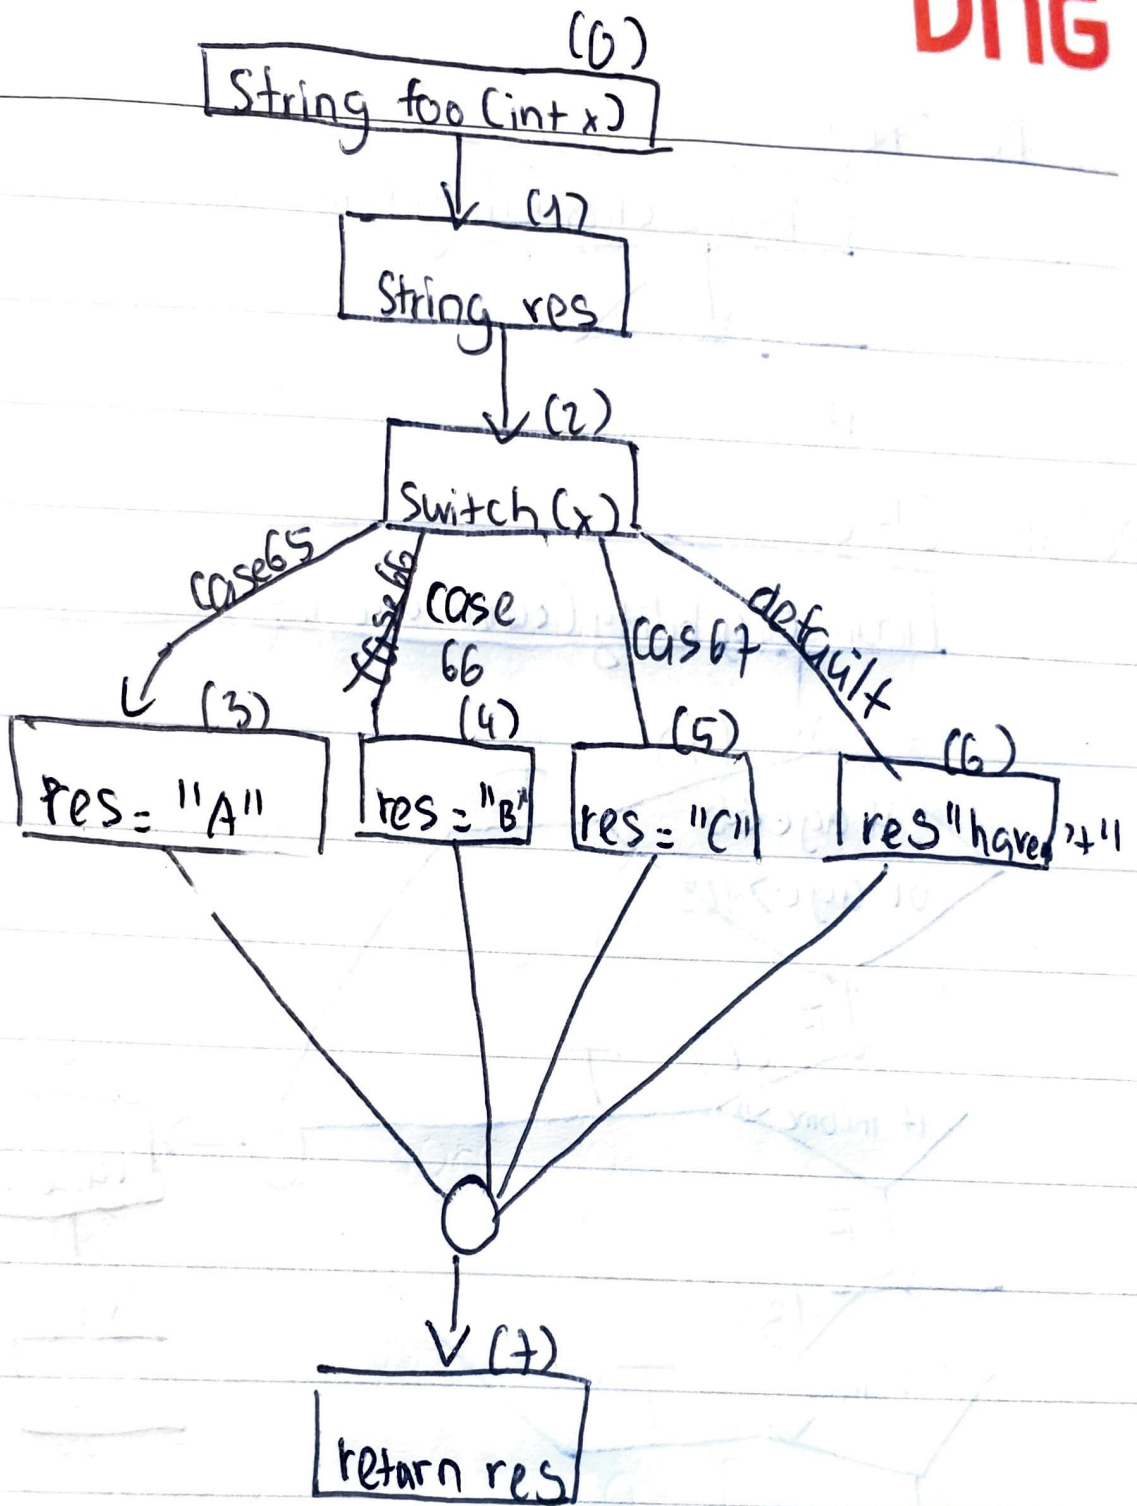 DHG
(0)
String foo (int x)
(1)
String res
(2)
Switch (x)
case65
case
66
cas67
default
(3)
(4)
(5)
(6)
res = "A"
res = "B"
res = "C"
(7)
return res